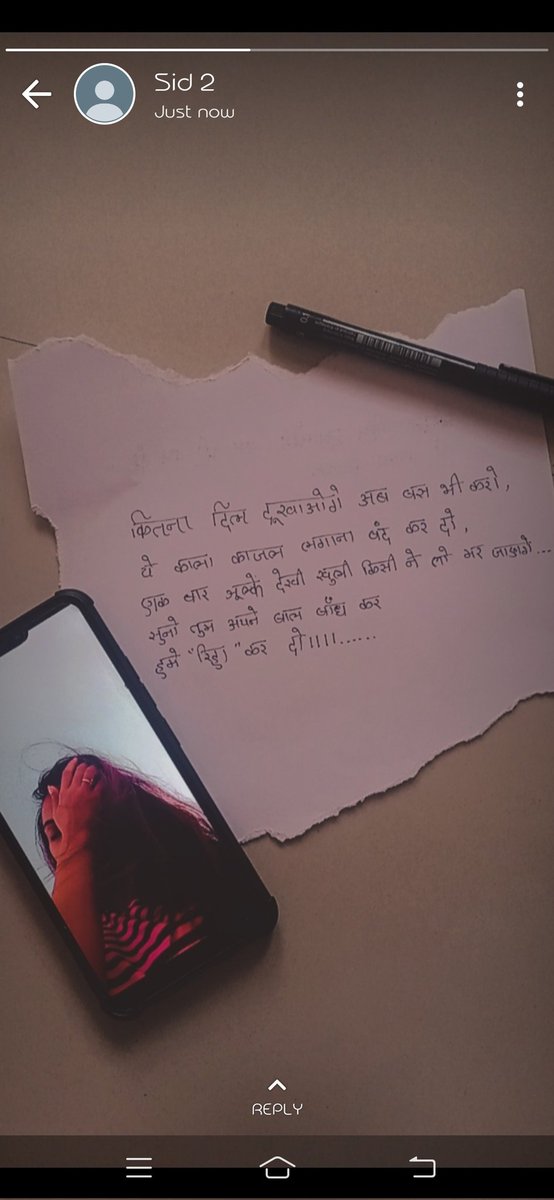 Sid 2
Just now
कितना दिल दूखाओगे अब बस भी करो,
ये काला काजल लगाना बंद कर दो,
एक बार जुल्फे देखी खुली किसी ने तो मर जाएगे...
सुनो तुम अपने बाल बाँध कर
हमे "रिहा" कर दो।।।।......
REPLY